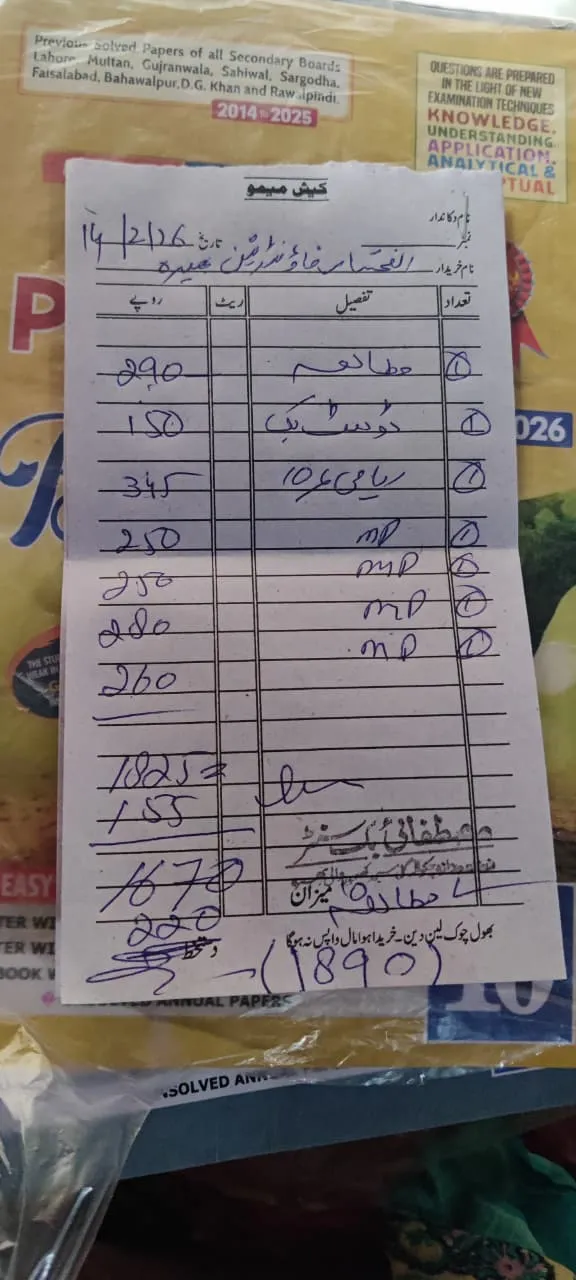 Previous Solved Papers of all Secondary Boards
Lahore, Multan, Gujranwala, Sahiwal, Sargodha,
Faisalabad, Bahawalpur, D.G. Khan and Rawalpindi.
2014 to 2025
QUESTIONS ARE PREPARED
IN THE LIGHT OF NEW
EXAMINATION TECHNIQUES
KNOWLEDGE,
UNDERSTANDING
APPLICATION,
ANALYTICAL &
PTUAL
کیش میمو
نام دکاندار
نمبر تاریخ 14/2/26
نام خریدار
تعداد تفصیل ریٹ روپے
1 مطالعہ 290
1 150
1 ریاضی 10 345
1 MP 250
1 MP 250
1 MP 280
1 MP 260
1825=
155
مصطفائی بک سنٹر
1670
میزان
مطالعہ 220
بھول چوک لین دین۔ خریدا ہوا مال واپس نہ ہوگا
دستخط
(1890)
026
THE STU
WEAK IN
EASY
TER WI
TER WI
BOOK W
SOLVED ANNUAL PAPERS
10
NSOLVED ANN